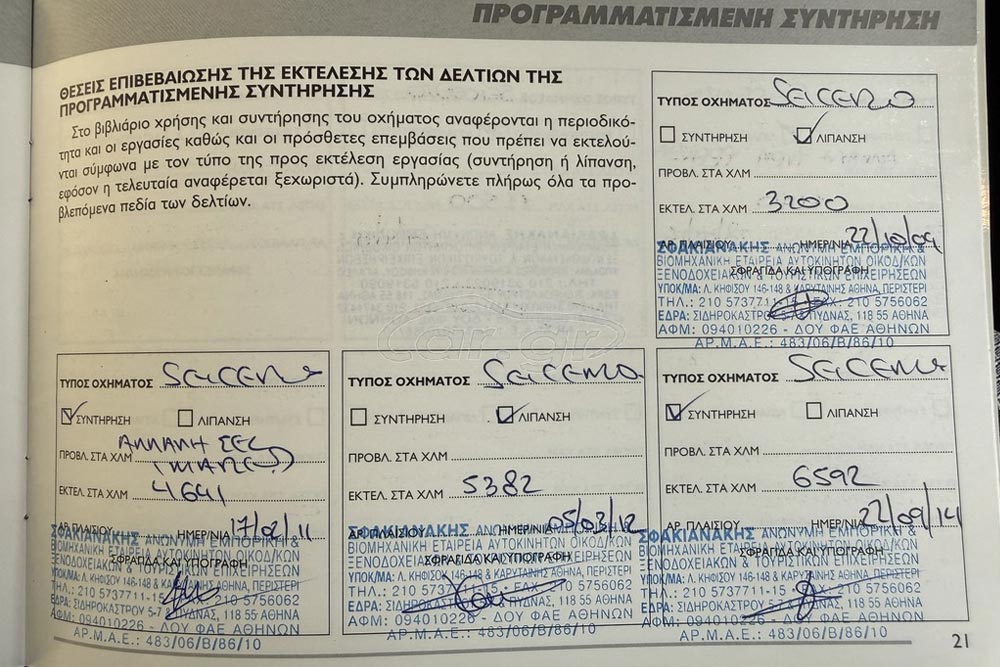 ΠΡΟΓΡΑΜΜΑΤΙΣΜΕΝΗ ΣΥΝΤΗΡΗΣΗ
ΘΕΣΕΙΣ ΕΠΙΒΕΒΑΙΩΣΗΣ ΤΗΣ ΕΚΤΕΛΕΣΗΣ ΤΩΝ ΔΕΛΤΙΩΝ ΤΗΣ
ΠΡΟΓΡΑΜΜΑΤΙΣΜΕΝΗΣ ΣΥΝΤΗΡΗΣΗΣ
Στο βιβλιάριο χρήσης και συντήρησης του οχήματος αναφέρονται η περιοδικό-
τητα και οι εργασίες καθώς και οι πρόσθετες επεμβάσεις που πρέπει να εκτελού-
νται σύμφωνα με τον τύπο της προς εκτέλεση εργασίας (συντήρηση ή λίπανση,
εφόσον η τελευταία αναφέρεται ξεχωριστά). Συμπληρώνετε πλήρως όλα τα προ-
βλεπόμενα πεδία των δελτίων.
ΤΥΠΟΣ ΟΧΗΜΑΤΟΣ Seicento
ΣΥΝΤΗΡΗΣΗ ΛΙΠΑΝΣΗ
ΠΡΟΒΛ. ΣΤΑ ΧΛΜ
ΕΚΤΕΛ. ΣΤΑ ΧΛΜ 3200
ΑΡ. ΠΛΑΙΣΙΟΥ ΗΜΕΡ/ΝΙΑ 22/10/09
ΣΦΑΚΙΑΝΑΚΗΣ ΑΝΩΝΥΜΗ ΕΜΠΟΡΙΚΗ &
ΒΙΟΜΗΧΑΝΙΚΗ ΕΤΑΙΡΕΙΑ ΑΥΤΟΚΙΝΗΤΩΝ ΟΙΚΟΔ/ΚΩΝ
ΞΕΝΟΔΟΧΕΙΑΚΩΝ & ΤΟΥΡΙΣΤΙΚΩΝ ΕΠΙΧΕΙΡΗΣΕΩΝ
ΣΦΡΑΓΙΔΑ ΚΑΙ ΥΠΟΓΡΑΦΗ
ΥΠΟΚ/ΜΑ: Λ. ΚΗΦΙΣΟΥ 146-148 & ΚΑΡΥΤΑΙΝΗΣ ΑΘΗΝΑ, ΠΕΡΙΣΤΕΡΙ
ΤΗΛ.: 210 5737711-15 FAX: 210 5756062
ΕΔΡΑ: ΣΙΔΗΡΟΚΑΣΤΡΟΥ & ΠΥΔΝΑΣ, 118 55 ΑΘΗΝΑ
ΑΦΜ: 094010226 - ΔΟΥ ΦΑΕ ΑΘΗΝΩΝ
ΑΡ.Μ.Α.Ε.: 483/06/Β/86/10
car.gr
ΤΥΠΟΣ ΟΧΗΜΑΤΟΣ Seicento
ΣΥΝΤΗΡΗΣΗ ΛΙΠΑΝΣΗ
ΑΛΛΑΓΗ ΣΕΤ
ΠΡΟΒΛ. ΣΤΑ ΧΛΜ ΙΜΑΝΤΕΣ
ΕΚΤΕΛ. ΣΤΑ ΧΛΜ 4641
ΑΡ. ΠΛΑΙΣΙΟΥ ΗΜΕΡ/ΝΙΑ 17/02/11
ΣΦΑΚΙΑΝΑΚΗΣ ΑΝΩΝΥΜΗ ΕΜΠΟΡΙΚΗ &
ΒΙΟΜΗΧΑΝΙΚΗ ΕΤΑΙΡΕΙΑ ΑΥΤΟΚΙΝΗΤΩΝ ΟΙΚΟΔ/ΚΩΝ
ΣΦΡΑΓΙΔΑ ΚΑΙ ΥΠΟΓΡΑΦΗ
ΞΕΝΟΔΟΧΕΙΑΚΩΝ & ΤΟΥΡΙΣΤΙΚΩΝ ΕΠΙΧΕΙΡΗΣΕΩΝ
ΥΠΟΚ/ΜΑ: Λ. ΚΗΦΙΣΟΥ 146-148 & ΚΑΡΥΤΑΙΝΗΣ ΑΘΗΝΑ, ΠΕΡΙΣΤΕΡΙ
ΤΗΛ.: 210 5737711-15 210 5756062
ΕΔΡΑ: ΣΙΔΗΡΟΚΑΣΤΡΟΥ 5-7 & ΠΥΔΝΑΣ, 118 55 ΑΘΗΝΑ
ΑΦΜ: 094010226 - ΔΟΥ ΦΑΕ ΑΘΗΝΩΝ
ΑΡ.Μ.Α.Ε.: 483/06/Β/86/10
ΤΥΠΟΣ ΟΧΗΜΑΤΟΣ Seicento
ΣΥΝΤΗΡΗΣΗ ΛΙΠΑΝΣΗ
ΠΡΟΒΛ. ΣΤΑ ΧΛΜ
ΕΚΤΕΛ. ΣΤΑ ΧΛΜ 5382
ΑΡ. ΠΛΑΙΣΙΟΥ ΗΜΕΡ/ΝΙΑ 05/03/12
ΣΦΑΚΙΑΝΑΚΗΣ ΑΝΩΝΥΜΗ ΕΜΠΟΡΙΚΗ &
ΒΙΟΜΗΧΑΝΙΚΗ ΕΤΑΙΡΕΙΑ ΑΥΤΟΚΙΝΗΤΩΝ ΟΙΚΟΔ/ΚΩΝ
ΣΦΡΑΓΙΔΑ ΚΑΙ ΥΠΟΓΡΑΦΗ
ΞΕΝΟΔΟΧΕΙΑΚΩΝ & ΤΟΥΡΙΣΤΙΚΩΝ ΕΠΙΧΕΙΡΗΣΕΩΝ
ΥΠΟΚ/ΜΑ: Λ. ΚΗΦΙΣΟΥ 146-148 & ΚΑΡΥΤΑΙΝΗΣ ΑΘΗΝΑ, ΠΕΡΙΣΤΕΡΙ
ΤΗΛ.: 210 5737711-15 FAX: 210 5756062
ΕΔΡΑ: ΠΥΔΝΑΣ, 118 55 ΑΘΗΝΑ
ΑΦΜ: 094010226 - ΔΟΥ ΦΑΕ ΑΘΗΝΩΝ
ΑΡ.Μ.Α.Ε.: 483/06/Β/86/10
ΤΥΠΟΣ ΟΧΗΜΑΤΟΣ Seicento
ΣΥΝΤΗΡΗΣΗ ΛΙΠΑΝΣΗ
ΠΡΟΒΛ. ΣΤΑ ΧΛΜ
ΕΚΤΕΛ. ΣΤΑ ΧΛΜ 6592
ΑΡ. ΠΛΑΙΣΙΟΥ ΗΜΕΡ/ΝΙΑ 22/09/14
ΣΦΑΚΙΑΝΑΚΗΣ ΑΝΩΝΥΜΗ ΕΜΠΟΡΙΚΗ &
ΒΙΟΜΗΧΑΝΙΚΗ ΕΤΑΙΡΕΙΑ ΑΥΤΟΚΙΝΗΤΩΝ ΟΙΚΟΔ/ΚΩΝ
ΣΦΡΑΓΙΔΑ ΚΑΙ ΥΠΟΓΡΑΦΗ
ΞΕΝΟΔΟΧΕΙΑΚΩΝ & ΤΟΥΡΙΣΤΙΚΩΝ ΕΠΙΧΕΙΡΗΣΕΩΝ
ΥΠΟΚ/ΜΑ: Λ. ΚΗΦΙΣΟΥ 146-148 & ΚΑΡΥΤΑΙΝΗΣ ΑΘΗΝΑ, ΠΕΡΙΣΤΕΡΙ
ΤΗΛ.: 210 5737711-15 210 5756062
ΕΔΡΑ: ΣΙΔΗΡΟΚΑΣΤΡΟΥ ΠΥΔΝΑΣ, 118 55 ΑΘΗΝΑ
ΑΦΜ: 094010226 - ΔΟΥ ΦΑΕ ΑΘΗΝΩΝ
ΑΡ.Μ.Α.Ε.: 483/06/Β/86/10
21